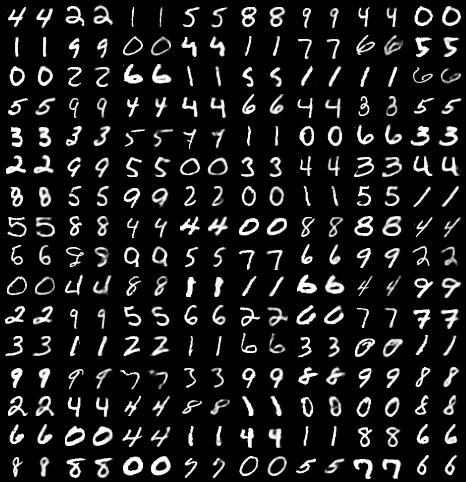 4 4 2 2 1 1 5 5 8 8 9 9 4 4 0 0
1 1 9 9 0 0 4 4 1 1 7 7 6 6 5 5
0 0 2 2 6 6 1 1 5 5 1 1 1 1 6 6
5 5 9 9 4 4 4 4 6 6 4 4 3 3 5 5
3 3 3 3 5 5 7 7 1 1 0 0 6 6 3 3
2 2 9 9 5 5 0 0 3 3 4 4 3 3 4 4
8 8 5 5 9 9 2 2 0 0 1 1 5 5 1 1
5 5 8 8 4 4 4 4 0 0 8 8 8 8 4 4
6 6 9 9 5 5 7 7 6 6 9 9 2 2
0 0 4 4 8 8 1 1 1 1 6 6 4 4 9 9
2 2 9 9 5 5 6 6 2 2 0 0 7 7 7 7
3 3 1 1 2 2 1 1 6 6 3 3 0 0 1 1
9 9 9 9 7 7 3 3 9 9 8 8 9 9 8 8
2 2 4 4 4 4 8 8 1 1 0 0 0 0 8 8
6 6 0 0 4 4 1 1 4 4 1 1 8 8 6 6
8 8 8 8 0 0 7 7 0 0 5 5 7 7 6 6